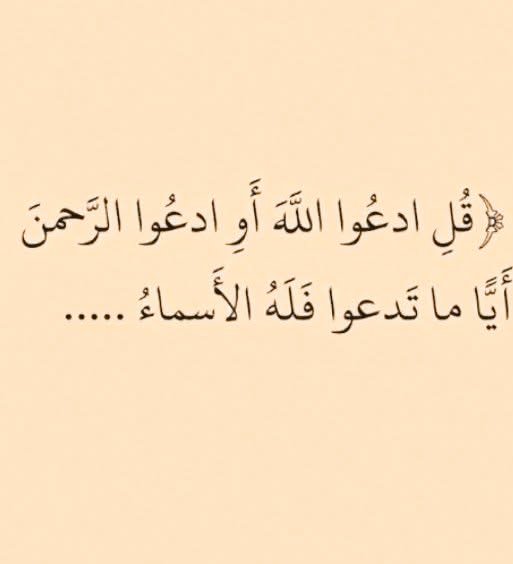 ﴿قُلِ ادعُوا اللَّهَ أَوِ ادعُوا الرَّحمنَ
أَيًّا ما تَدعوا فَلَهُ الأَسماءُ .....